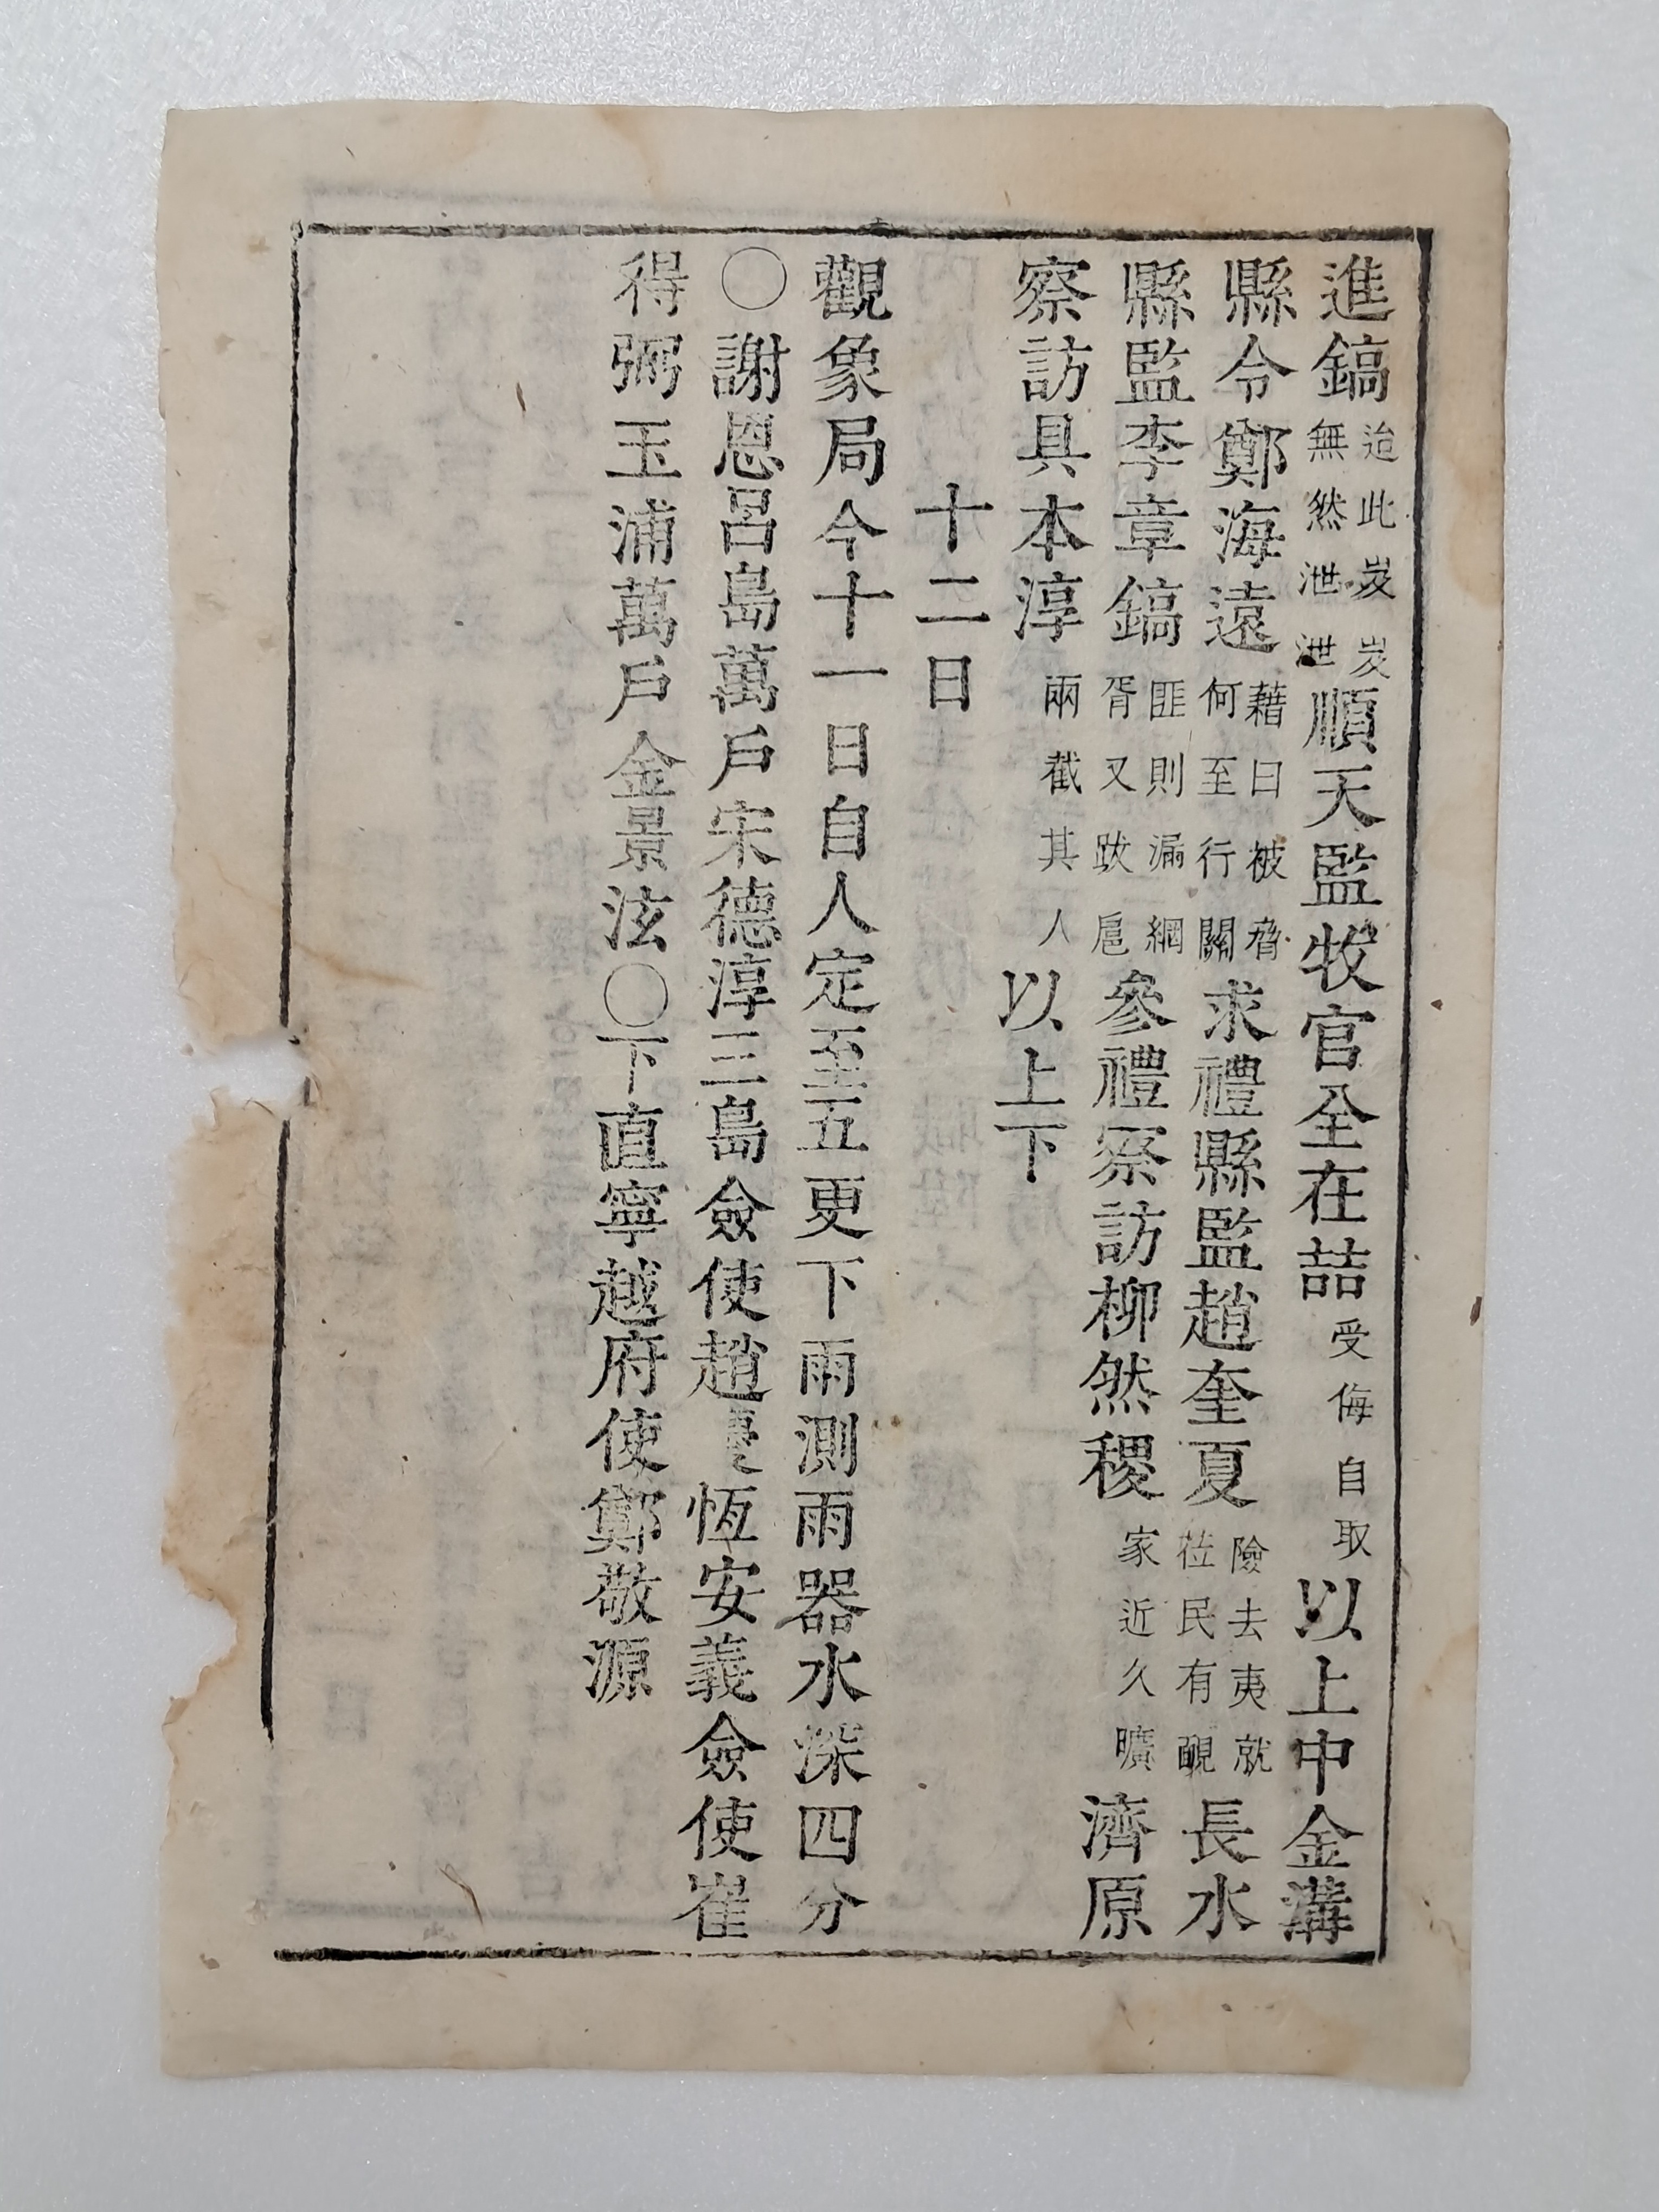 進鎬迨此岌岌無然泄泄順天監牧官全在喆受侮自取以上中金溝
縣令鄭海遠藉曰被脅何至行關求禮縣監趙奎夏險去夷就莅民有靦長水
縣監李章鎬匪則漏網胥又跋扈參禮察訪柳然稷家近久曠濟原
察訪具本淳兩截其人以上下
十二日
觀象局今十一日自人定至五更下雨測雨器水深四分
〇謝恩呂島萬戶宋德淳三島僉使趙恆安義僉使崔
得弼玉浦萬戶金景泫〇下直寧越府使鄭敬源